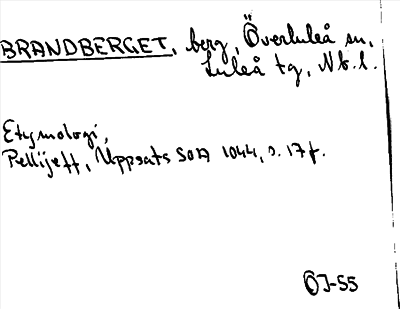 BRANDBERGET, berg, Överluleå sn,
Luleå tg, Nb. l.
Etymologi,
Pellijeff, Uppsats SOA 1044, s. 17f.
ÖJ-55